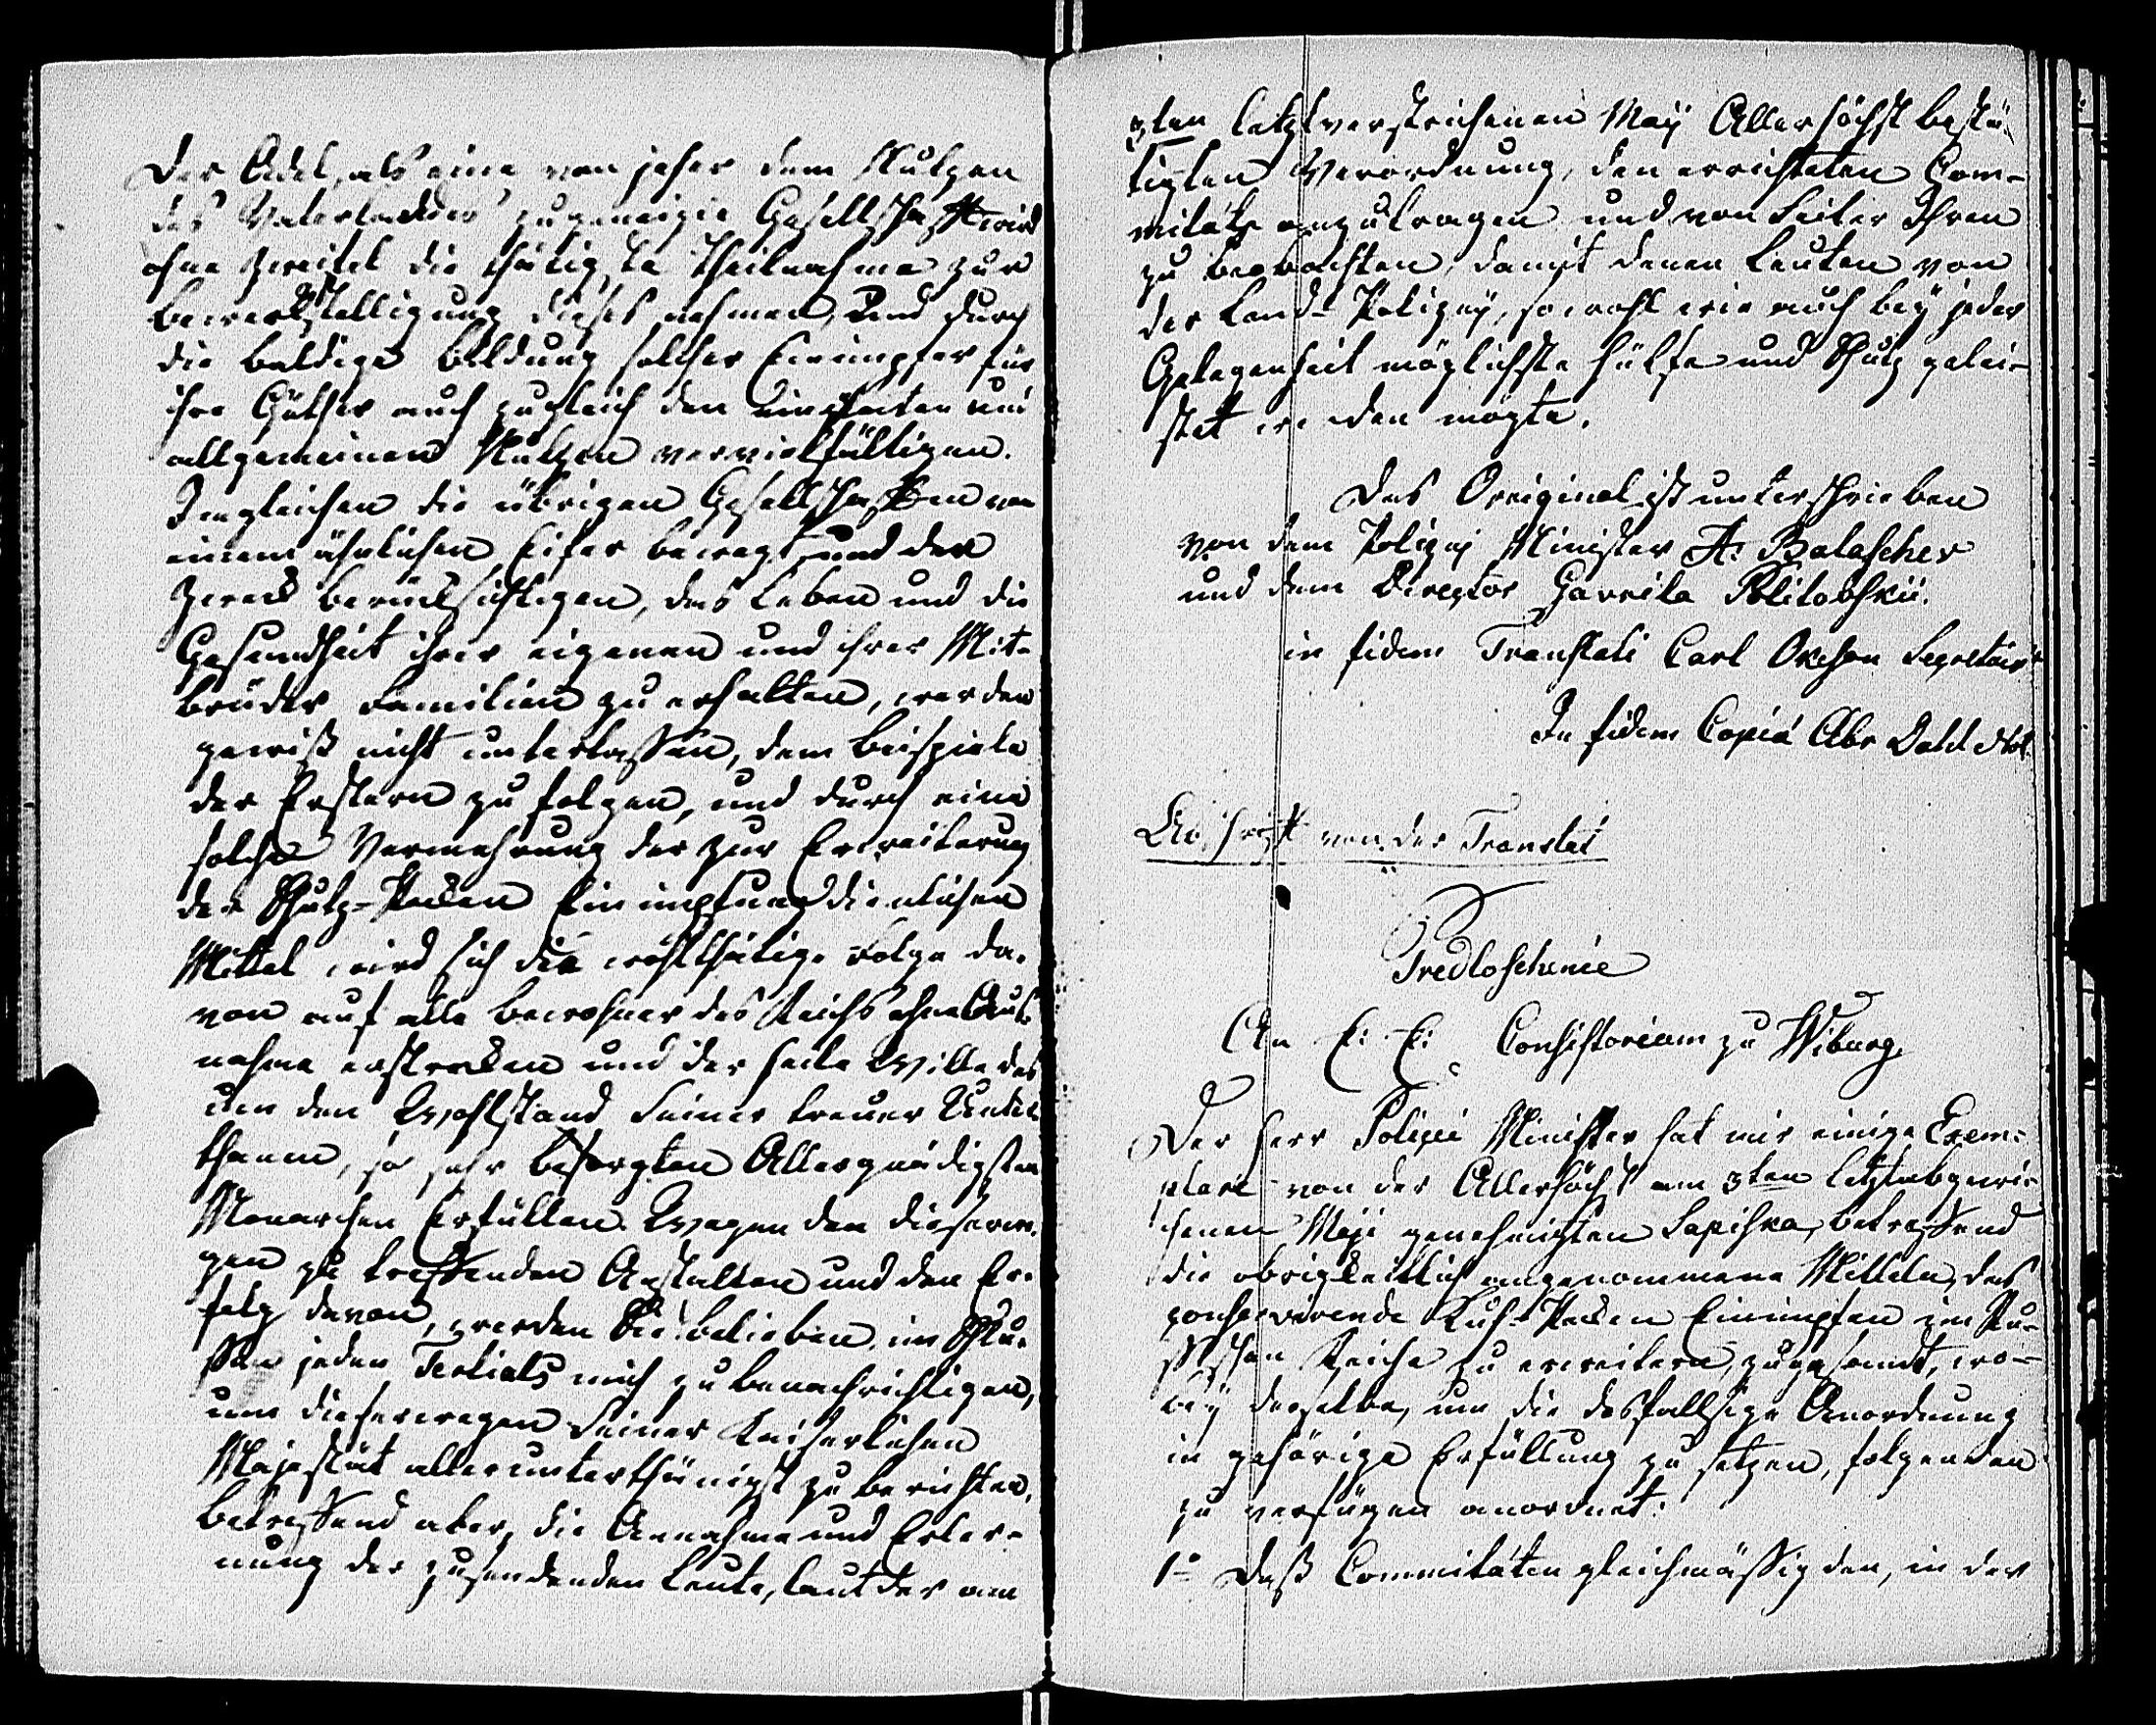 Der Adel, als eine von jeher dem Nutzen
des Vaterlandes zugeneigte Gesellschaft wird
ohne Zweifel die thätigste Theilnahme zur
Bewerkstelligung dieses nehmen, und durch
die baldige Bildung solcher Einimpfer für
ihre Güther auch zugleich den
allgemeinen Nutzen vervielfältigen.
Imgleichen die übrigen Gesellschaften von
einem ähnlichen Eifer bewegt, und den
Zweck berücksichtigen, das Leben und die
Gesundheit ihrer eigenen und ihrer Mit-
brüder Familien zu erhalten, werden
gewiß nicht unterlassen, dem Beispiele
der Erstern zu folgen, und durch eine
solche Vermehrung der zur Erweiterung
der Schutz-Pocken Einimpfung dienlichen
Mittel wird sich die wohlthätige Folge da-
von auf alle Bewohner des Reichs ohne Aus-
nahme erstrecken und der Wille des
um den Wohlstand Seiner treuen Unter
thanen, so sehr besorgten Allergnädigsten
Monarchen Erfüllen. Wegen den dieserwe-
gen zu treffenden Anstalten und den Er-
folg davon, werden Sie belieben im Schlu-
sse jeden Tertials mich zu benachrichtigen,
um dieserwegen Seiner Kaiserlichen
Majestät allerunterthänigst zu berichten.
Betreffend aber, die Annahme und Erler-
nung der zusendenden Leute, laut der am
3ten letztverstrichenen May Allerhöchst bestä-
tigten Verordnung, den errichteten Com-
mitäts anzutragen und von Seiten Ihren
zu beobachten, damit denen Leuten von
der Land-Polizey, sowohl wie auch bey jeder
Gelegenheit möglichste Hülfe und Schutz gelei-
stet werden mögte.
Das Original ist unterschrieben
von dem Polizey Minister A. Balaschev
und dem Director Gavrila Politovskii.
in fidem Translati Carl Secretair
In fidem Copiæ Abr Not.
Abschrift von der Translat
Predloschenie
An E: E: Consistorium zu Wiburg.
Der Herr Polizei Minister hat mir einige Exem-
plare von der Allerhöchst am 3ten letztabgewi-
chenen Maji genehmigten Sapiska, betreffend
die obrigkeitlich angenommene Mitteln, das
conservirende Kuh-Pocken Einimpfen im Ru-
ssischen Reiche zu erweitern, zugesandt, wo-
bey derselbe, um die desfallsige Anordnung
in gehörige Erfüllung zu setzen, folgenden
zu verfügen anordnet:
1o Daß Commitäten gleichmässig den, in der